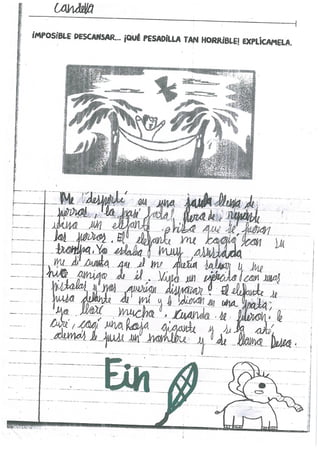 Candela
¡IMPOSIBLE DESCANSAR... ¡QUÉ PESADILLA TAN HORRIBLE! EXPLÍCAMELA.
Me desperté en una jaula llena de
perros, la pasé fatal, de repente
un elefante hizo que se fueran
los perros. El elefante me cogió con su
trompa. Yo estaba muy asustada
me di cuenta que él me quería salvar y me
hice amiga de él. Vino un ejército con unas
pistolas y nos querían disparar. El elefante se
puso delante de mí y le dieron en una pata.
yo lloré mucha. Cuando se fueron, le
curé, cogí una hoja gigante y se la até,
además le puse un nombre y se llama Dosca.
Ein